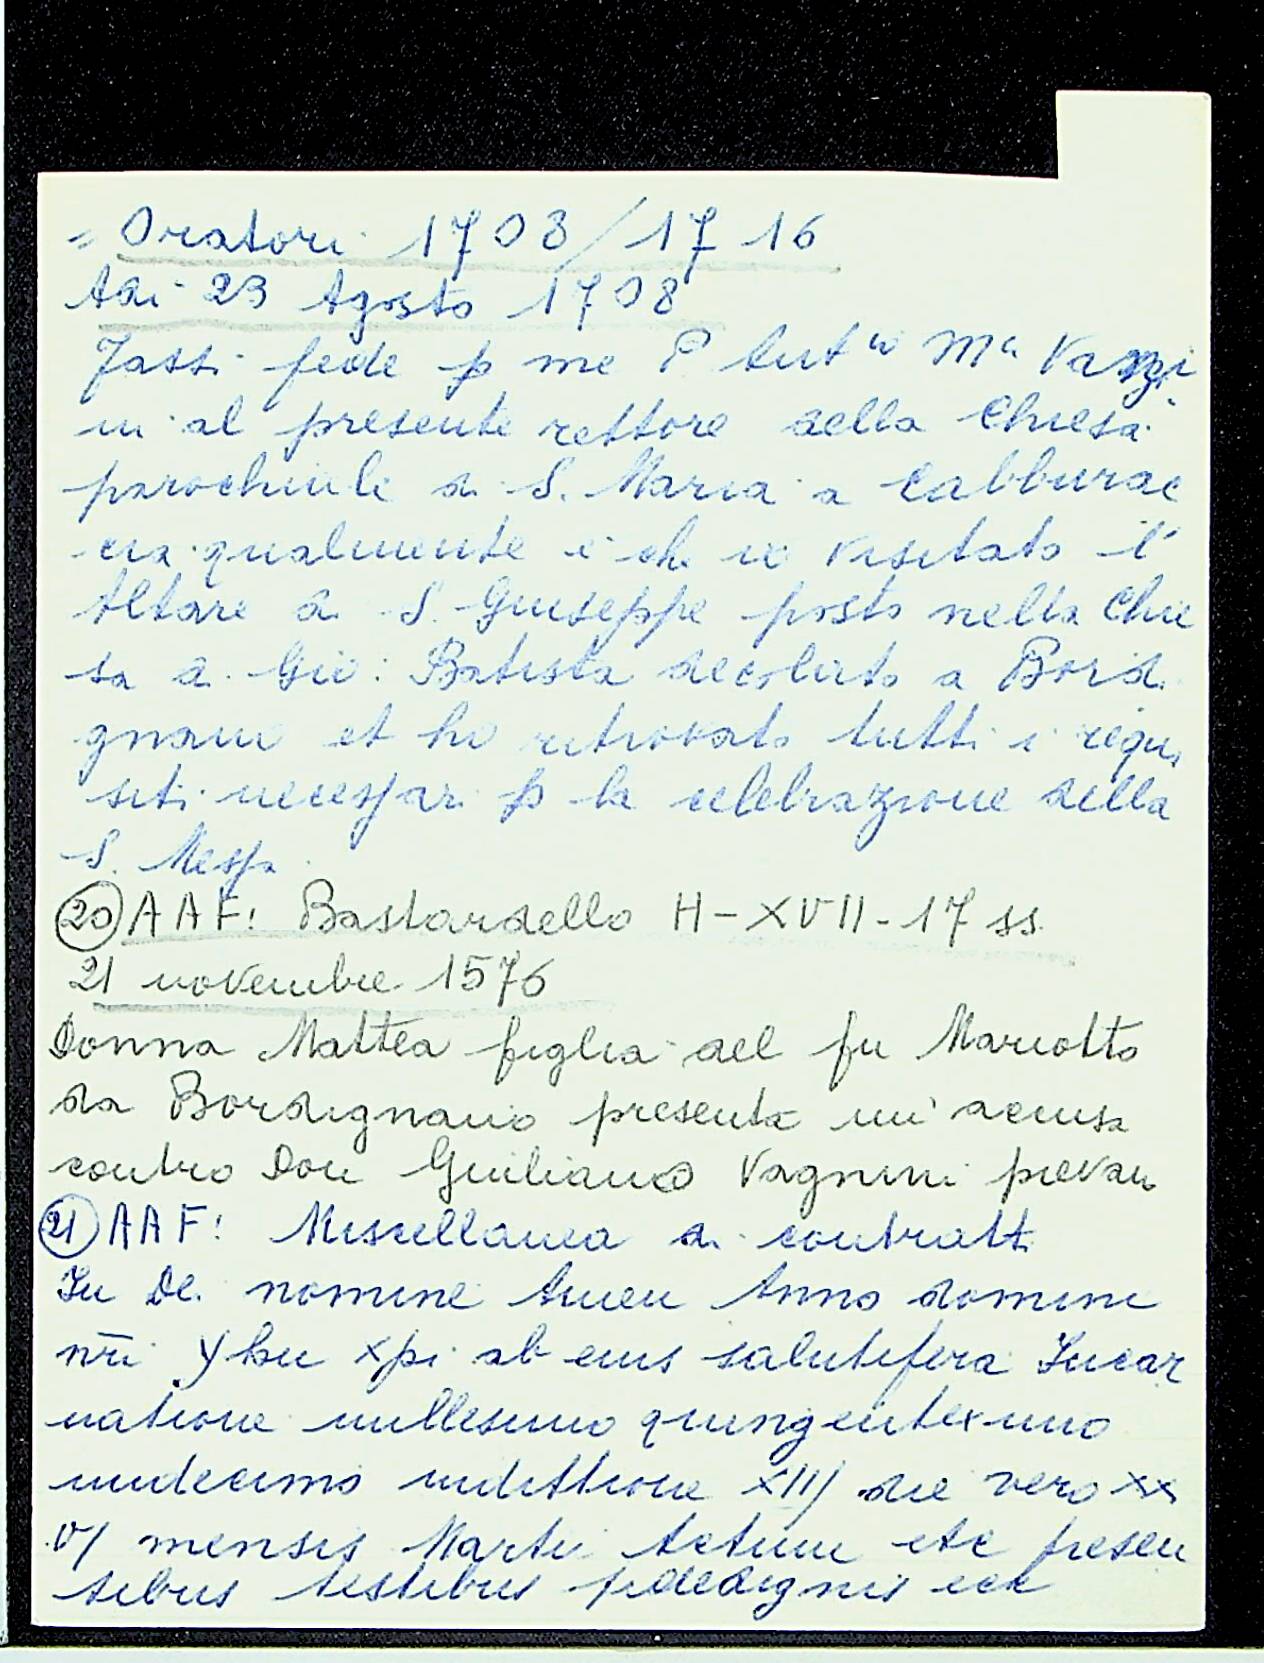 = Oratori 1708/1716
Adi 23 Agosto 1708
Fassi fede p me P Ant.o M.a Vazzi
ni al presente rettore della Chiesa
parochiale di S. Maria a Cabburac
cia qualmente è che io visitato l'
Altare di S. Giuseppe posto nella Chie
sa di Gio: Batista decolato a Bordi
gnano et ho ritrovato tutti i requi
siti necessari p la celebrazione della
S. Messa
(20) AAF: Bastardello H-XVII-17 ss.
21 novembre 1576
Donna Mattea figlia del fu Mariotto
da Bordignano presenta un'accusa
contro Don Giuliano Vagnini pievano
(21) AAF: Miscellanea di contratti
In Dei nomine Amen Anno domini
nr̄i Yhu xpi ab eius salutifera Incar
natione millesimo quingentexmo
undecimo indittione XIIJ die vero xx
VJ mensis Martii Actum etc presen
tibus testibus fidedignis ecc